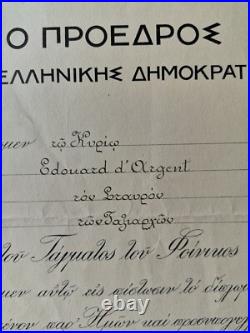 Ο ΠΡΟΕΔΡΟΣ
ΕΛΛΗΝΙΚΗΣ ΔΗΜΟΚΡΑΤ
μεν τῷ Κυρίῳ
Edouard d'Argent
τόν Σταυρόν
τῶν Ταξιαρχῶν
τοῦ Τάγματος τοῦ Φοίνικος
μεν αὐτῷ εἰς πίστωσιν τό δίπλωμ
μένον παρ' Ἡμῶν καί προσυπογ